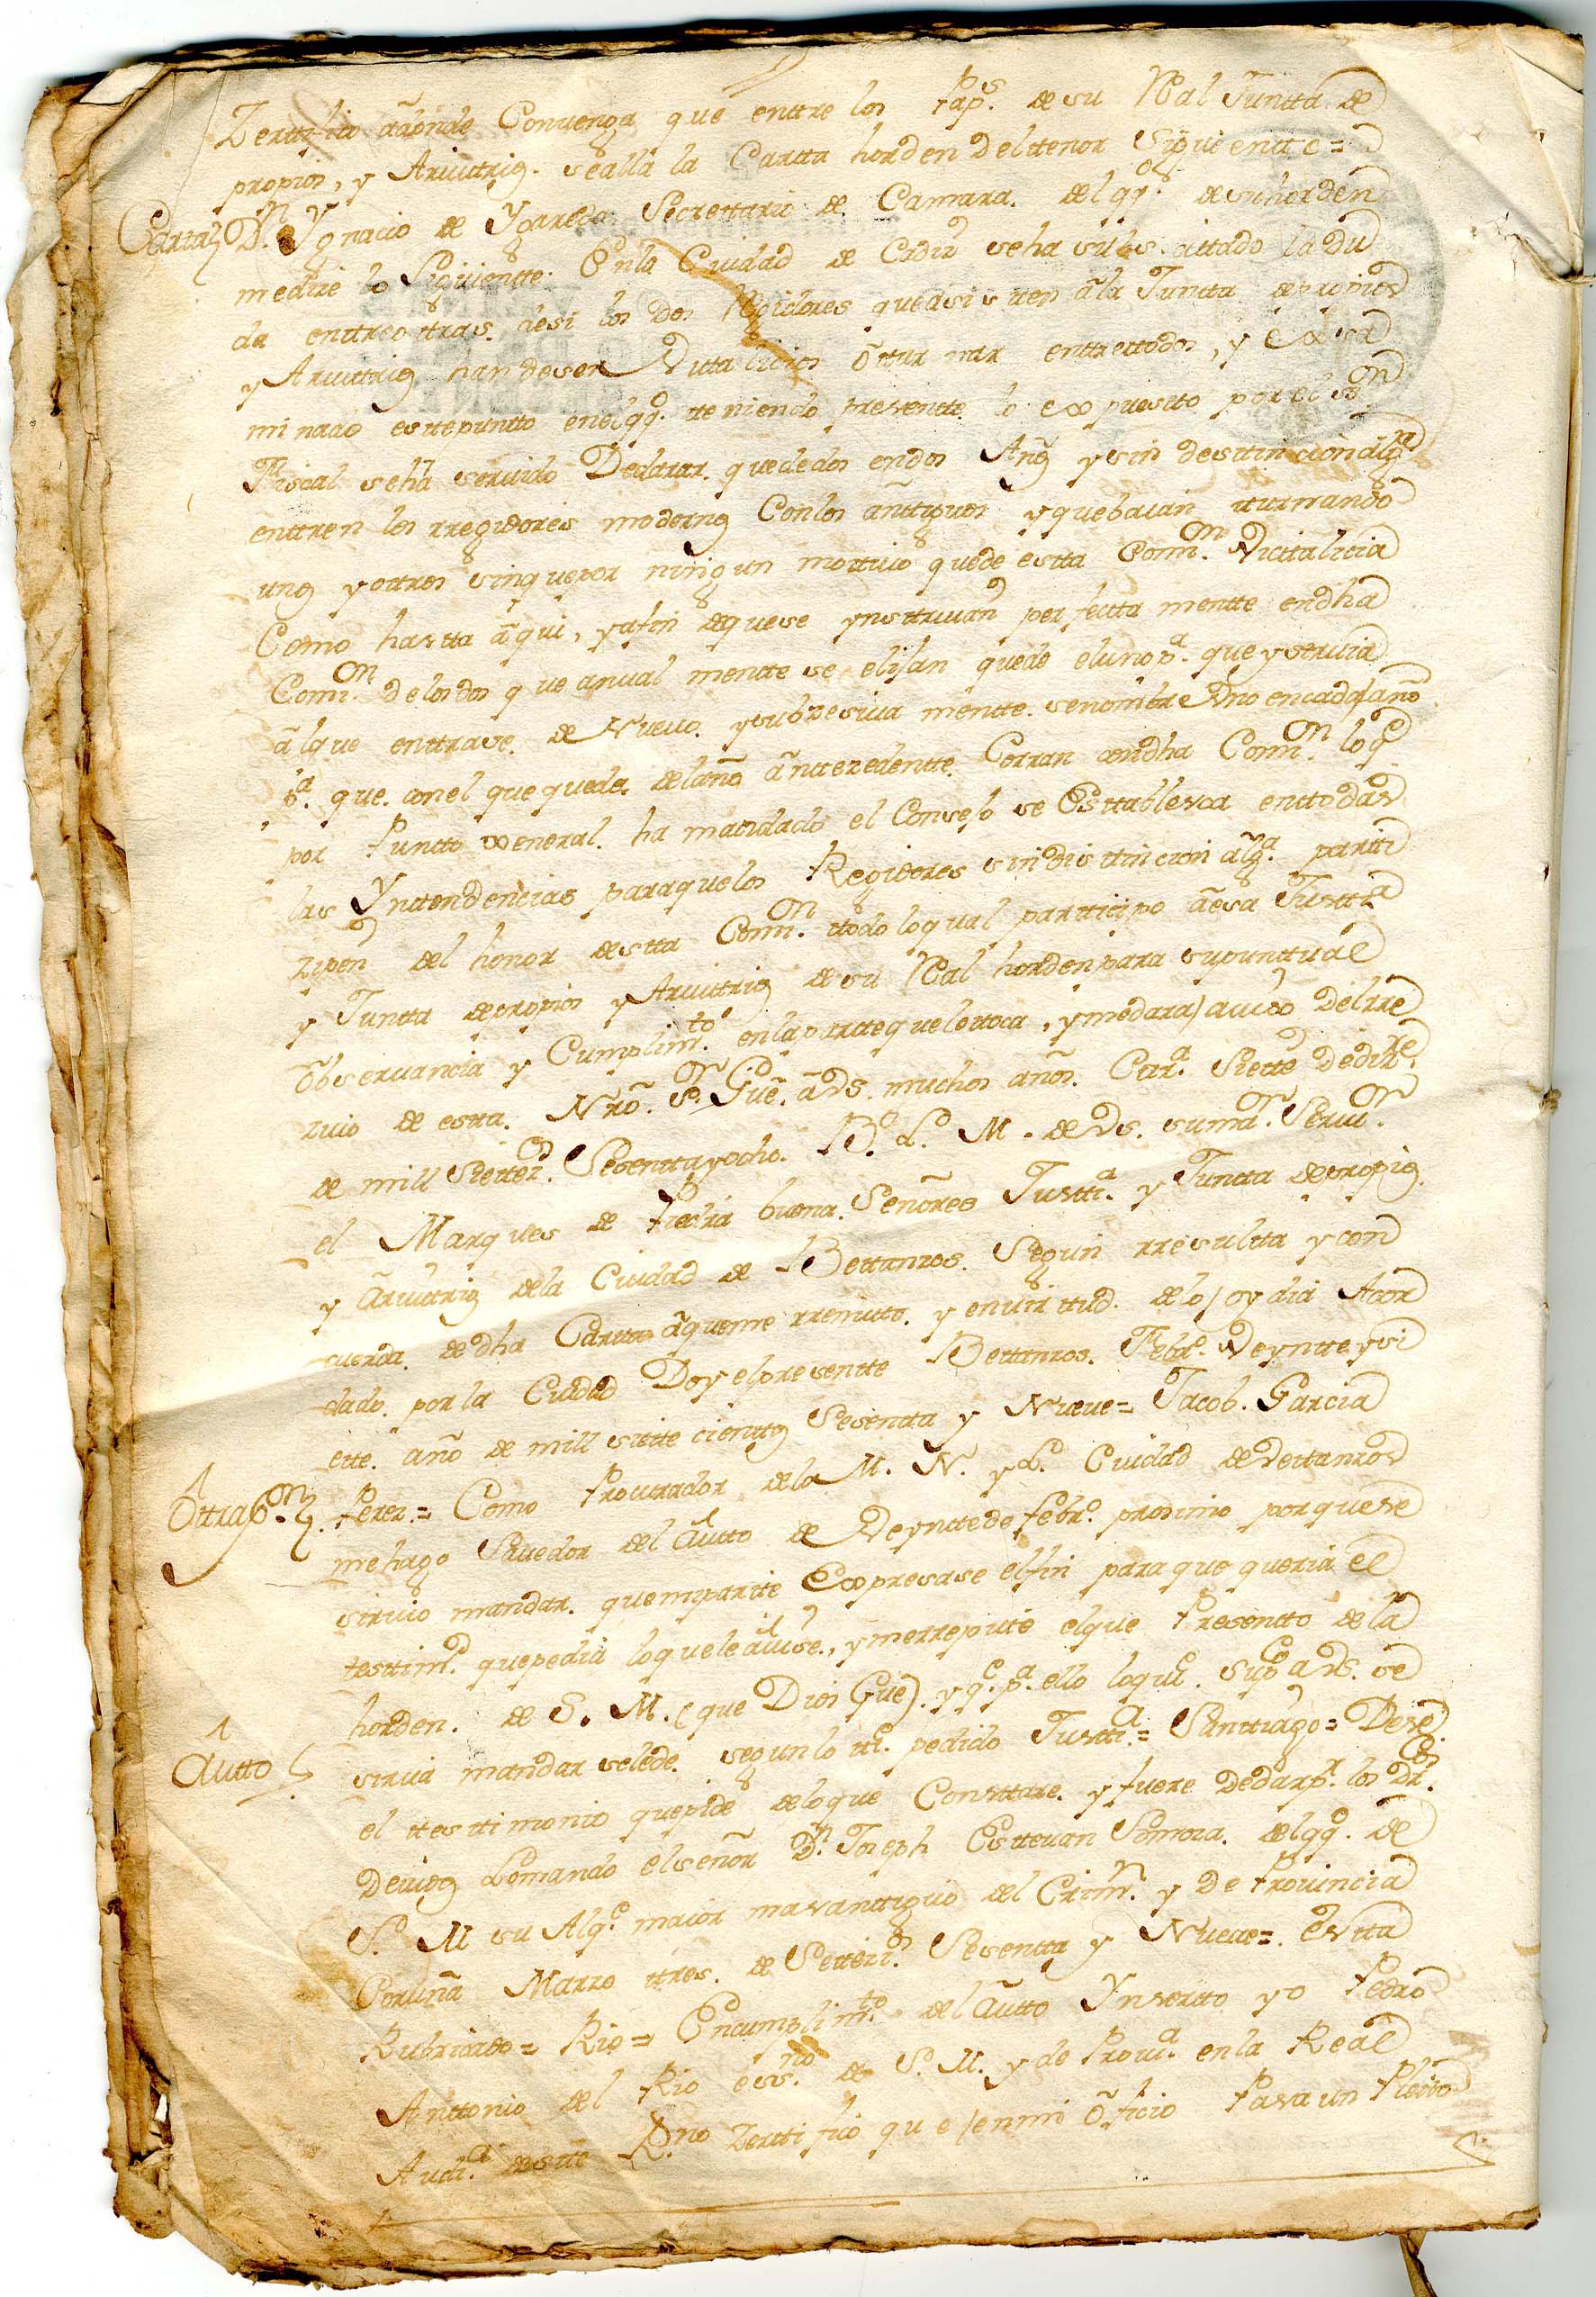 Zerttifico âdonde Convenga que enttre los Paps. de su Rl Juntta de
propios, y Arvittrios. se alla la Cartta horden del ttenor Siguientte=
Cartta Dn. Ygnacio de Ygareda Secrettario de Camara. del qo. de su horden
medize lo Siguientte. En la Ciudad de Cadiz se ha suscittado la du
da enttre ottras. de si los Dos Rejidores que asistten âla Juntta de propios
y Arvittrios han de ser Vitalicios ô tturnar enttre ttodos, y Exsa
minado este puntto en el qo. tteniendo presentte lo expuestto por el Sn
Fiscal se ha servido Declarar. que de dos en dos Años y sin desttincion alga
enttren los rregidores modernos Con los anttiguos y que baian tturnando
unos y ottros sin que por ningun mottivo quede estta Comn. Vittalicia
Como hastta âqui, y a fin de que se ynsttruian perfectta mentte en dha
Comn. de los dos que anual mentte se elijan quede el uno pa. que ystruia
âl que enttrase. de Nuevo. y subzesiva mentte. se nombre Uno en cada año
pa. que. con el que queda. del año ânttezedentte. Corran con dha Comn. lo qe
por Puntto General. ha mandado el Consejo se Esttablezca en ttodas
las Yntendencias para que los Regidores sin disttincion alga. partti
zipen del honor de stta Comn. ttodo lo qual partticipo â esa Justtª
y Juntta de propios y Arvittrios de su Real horden para su punttual
Observancia y Cumplimto. en la partte que le ttoca, y me dara avisso del rre
zivo de estta. Nro. Sr. Gue. â Vs. muchos años. Cora. Siette de dize.
de mill Settezs. Sesentta y ocho. B. L. M. de Vs. su mar. Servr.
el Marques de Piedra buena. Señores Justtia. y Juntta de propios
y ârvittrios dela Ciudad de Bettanzos. Segun rresultta y con
cuerda. de dha Cartta âque me rremitto. y en virttud. de lo oy dia Acor
dado. por la Ciudad Doy el presentte Bettanzos. Febo. Veyntte y si
ette. año de mill siette cienttos Sesentta y Nueve= Jacob. Garcia
Ottra pon. Perez.= Como Procurador dela M. N. y L. Ciudad de Vettanzos
me hago Savedor del Autto de Veyntte de febro. proximo por que se
sirvio mandar. que mi partte Expresase el fin para que queria el
testtimo. que pedia lo que le avise., y me rrepitte el que Presentto de la
horden. de S. M. (que Dios Gue). y qe. pa. ello lo que. Supco a Vs. se
Autto sirva mandar se le de. segun lo tte. pedido Justtia.= Santtiago= Dese
el ttesttimonio que pide de lo que Consttare. y fuere De dar pa. los Dros.
Devidos Lo mando el señor Dn. Joseph Esttevan Somoza. del qo. de
S. M su Alqe. maior mas anttiguo del Crimn. y De Provincia
Coruña Marzo ttres. de Settezs. Sesentta y Nueve=. Estta
Rubricado= Rio= En cumplimto. del Autto Ynsertto yo Pedro
Anttonio del Rio essno. de S. M. y de Prova. en la Real
Audia. de stte Rno Zerttifico que en mi Oficio Pasa un Pleitto